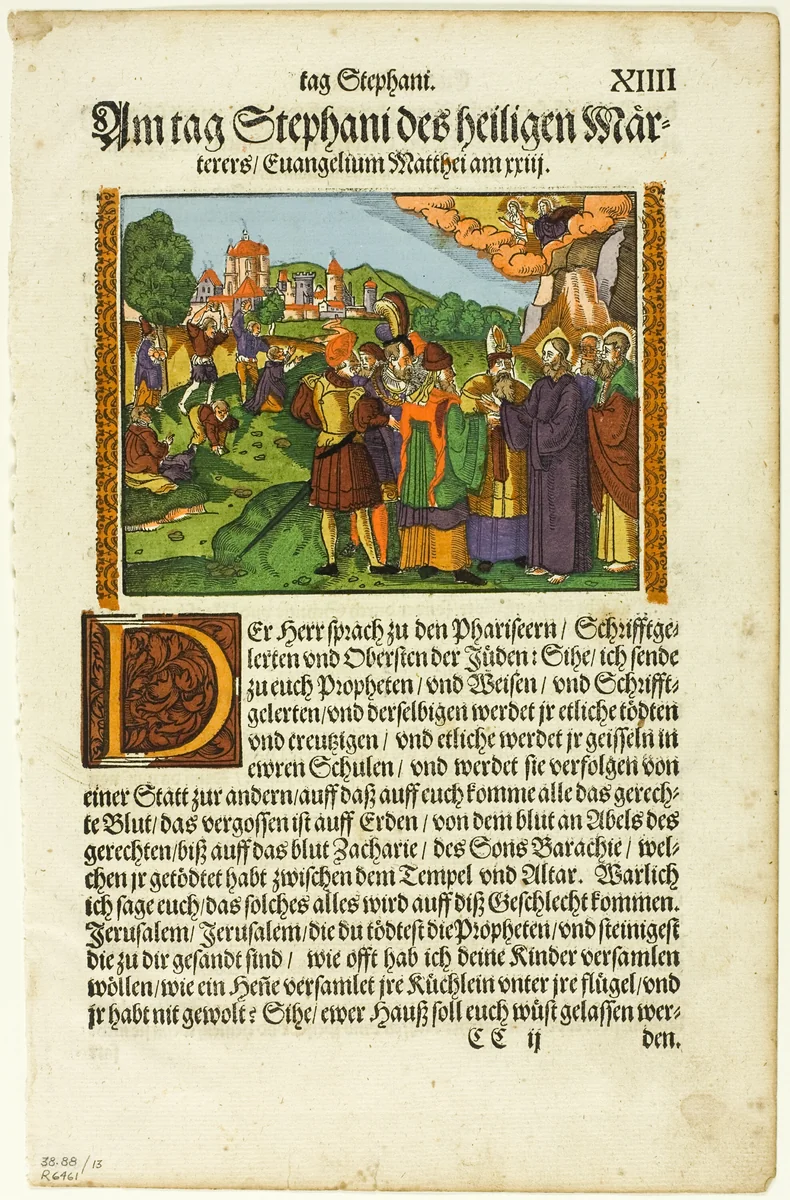 tag Stephani. XIIII
Am tag Stephani des heiligen Mär-
terers/ Euangelium Matthei am xxiij.
DEr Herr sprach zu den Phariseern / Schrifftge-
lerten vnd Obersten der Jüden: Sihe/ ich sende
zu euch Propheten / vnd Weisen / vnd Schrifft-
gelerten/vnd derselbigen werdet jr etliche tödten
vnd creutzigen / vnd etliche werdet jr geisseln in
ewren Schulen / vnd werdet sie verfolgen von
einer Statt zur andern/auff daß auff euch komme alle das gerech-
te Blut/ das vergossen ist auff Erden / von dem blut an Abels des
gerechten/biß auff das blut Zacharie / des Sons Barachie / wel-
chen jr getödtet habt zwischen dem Tempel vnd Altar. Warlich
ich sage euch/das solches alles wird auff diß Geschlecht kommen.
Jerusalem/ Jerusalem/die du tödtest die Propheten/vnd steinigest
die zu dir gesandt sind / wie offt hab ich deine Kinder versamlen
wöllen/wie ein Heñe versamlet jre Küchlein vnter jre flügel/vnd
jr habt nit gewolt? Sihe/ ewer Hauß soll euch wüst gelassen wer-
CC ij den.
38.88/13
R6461